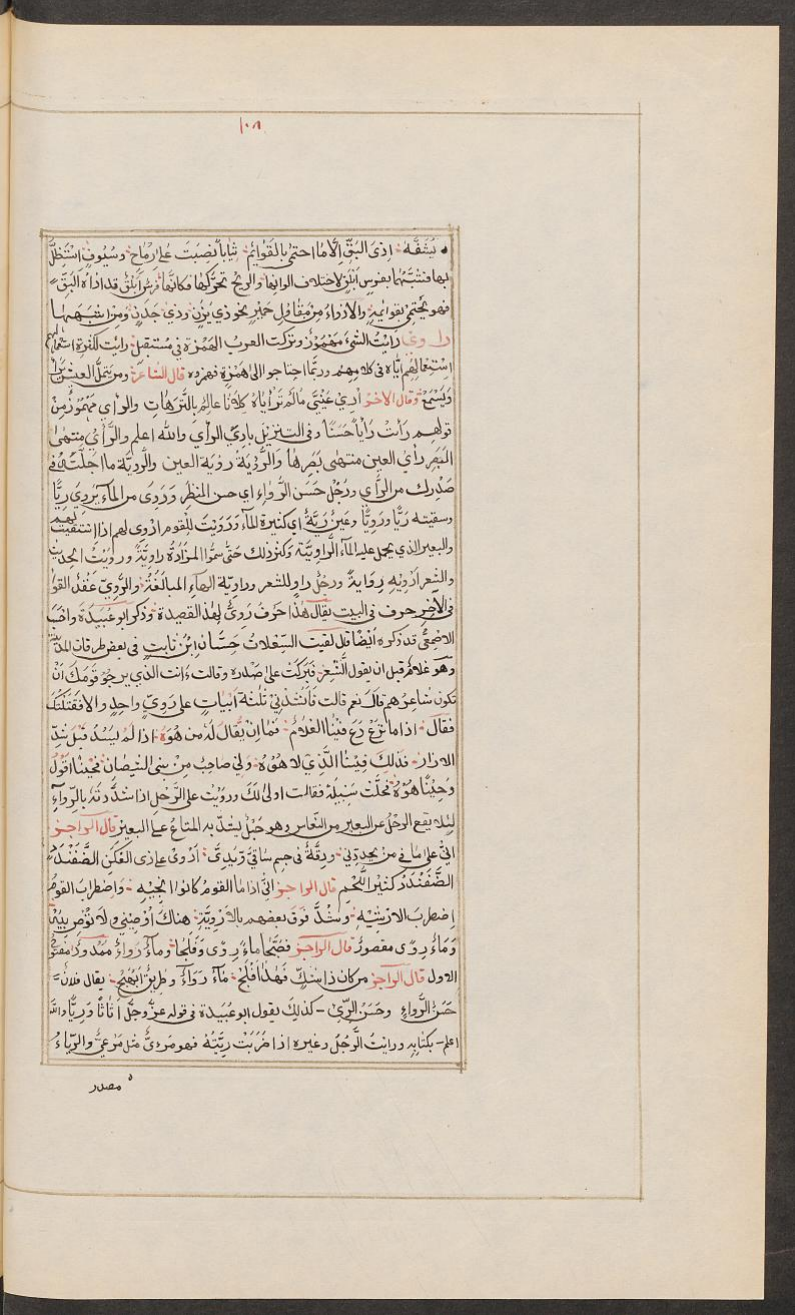 ١٠٨
يَشُفَّهُ اذى البَقِّ اِلَّا ما احتمى بالقَوائِم ثيابًا نُصِبَت على ارماح وسُيُوف استَظَلَّ
بها فشبَّهَها بفرس ابلق لاختلاف الوانها والريح تحرّكها فكانّها فرس أَبلق قد اذاه البَقّ
فهو يحتمى بقوائمه والاذواءُ من مقاول حِمْيَر نحو ذي يَزَنٍ وذي جَدَنٍ ومن اشبههما
راوي رايتُ الشيءَ مَهْمُوزٌ وتركت العرب الهَمزة في مستقبل رايت لكثرة استعمالهم
استعمالهم ايّاه في كلامهم وربّما احتاجوا الى همزة فهمزوه قال الشاعر ومن يتملَّ العيشَ يَرْأَ
وَيَسْمَع وقال الاخر أُرِي عَيْنَيَّ مالم تَرْأَياهُ كِلانا عالِم بالتُّرَهاتِ والرأي مَهموزٌ من
قولهم رَأيتُ رَأيًا حَسَنًا وفي التنزيل بادِيَ الرأي والله اعلم والرَّأيُ منتهى
البَصَر رأيُ العين منتهى بَصَرها والرُّؤيَة رؤية العين والرويّة ما اجَلْتَه في
صَدْرك من الرأي ورَجُل حَسَن الرُّواءِ اي حسن المنظر وَرَوِيَ من الماء يَرْوَى رِيًّا
وسقيته رَيًّا ورَوِيًّا وعَينٌ رَيَّةٌ اي كثيرة الماء وَرَوَيتُ للقوم اروى لهم اذا استقيت لهم
والبعير الذي يحمل عليه الماء الرّاوِيَة وكثر ذلك حتّى سمّوا المزادةَ راوِيَةً ورويتُ الحديث
والشعر اَرْوِيه رِوايةً ورجلٌ راوٍ للشعر وراوية الهاء للمبالَغَة والرَّوِيّ عَقْد القَوَا
في الآخِر حرف في البيت يقال هذا حَرْف رَوِيّ لهذه القصيدة وذكر ابو عُبَيدَة واحسَبَ
الاصمعيّ قد ذكره ايضًا قال لقيت السِّعلاتُ حَسّانَ ابنَ ثابتٍ في بعض طرقات المدينة
وهو غلامٌ قبل ان يقول الشِّعر فبَرَكَتْ على صَدْره وقالت ءَانت الذي يرجو قومك اَنْ
تكون شاعرهم قالَ نعم قالت فأَنشدني ثَلثةَ اَبياتٍ على رَوِيٍّ واحد والّا قتلتك
فقال اذا ما تَرَعْرَعَ فينا الغلامُ فما اِن يُقالُ لهُ من هُوَهْ اذا لم يَسُدْ قبلَ شدِّ
الازار فذلك فينا الَّذي لا هُوَهْ ولي صاحِبٌ مِنْ بني الشيصبان فحينًا اقولُ
وحينًا هُوَهْ فخلَّت سَبيلَه فقالت اولى لكَ ورويتُ على الرَّحْل اذا شدَدتَه بالرِّواء
لئلّا يقع الرجلُ عن البعير من النّعاس وهو حَبْل يُشدّ به المتاعُ على البعير قال الراجز
اِنّي على ما فيّ من تخدُّدي ودِقَّةٌ في جسم ساقي ويَدي أَرْوي على ذي العُكَنِ الضَّفَنْدَدِ
الضَّفَنْدَد كثير اللحم قال الراجز اِنّي اذا ما القومُ كانوا انجيَه واضطرب القومُ
اِضطِرابَ الارشيه وشُدَّ فوقَ بعضهم بالاَرْوِيَة هناك اَوْصيني ولا تُوصي بيه
وَماءٌ رِوًى مقصورٌ قال الراجز فصبَّحا ماءً رِوًى وفَلَجَا وماءٌ رَواءٌ ممدود مفتوح
الاول قال الراجز من كان ذا شكٍّ فهذا فَلَج ماءٌ رَواءٌ وطريقٌ نَهْج يقال فلان
حَسَن الرُّواءِ وحَسَنُ الرِّئي كذلك يقول ابو عُبَيدة في قوله عزَّ وجلَّ أثاثًا ورِيًّا والله
اعلم بكتابه ورايتُ الرجُل وغيره اذا ضَرَبْتَ رِيَّتَهُ فهو مَرْئيٌّ مثل مَرْعِيّ والرِّياءُ
مصدر